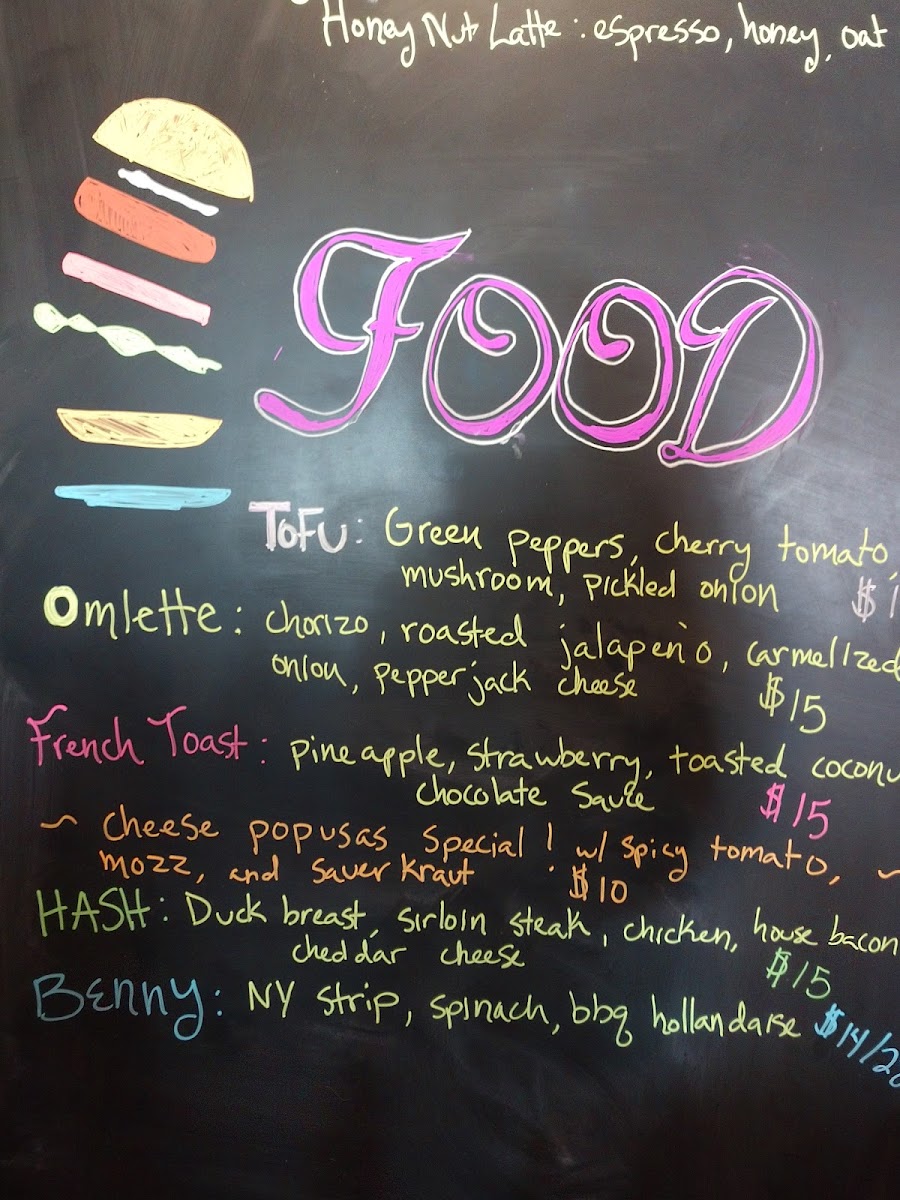 Honey Nut Latte : espresso, honey, oat
FOOD
TOFU : Green peppers, cherry tomato,
mushroom, pickled onion $1
Omlette : chorizo, roasted jalapeño, carmelized
onion, pepperjack cheese $15
French Toast : pineapple, strawberry, toasted coconu
chocolate sauce $15
~ cheese popusas special! w/ spicy tomato, ~
mozz, and sauerkraut $10
HASH : Duck breast, sirloin steak, chicken, house bacon
cheddar cheese $15
Benny : NY strip, spinach, bbq hollandaise $14/20